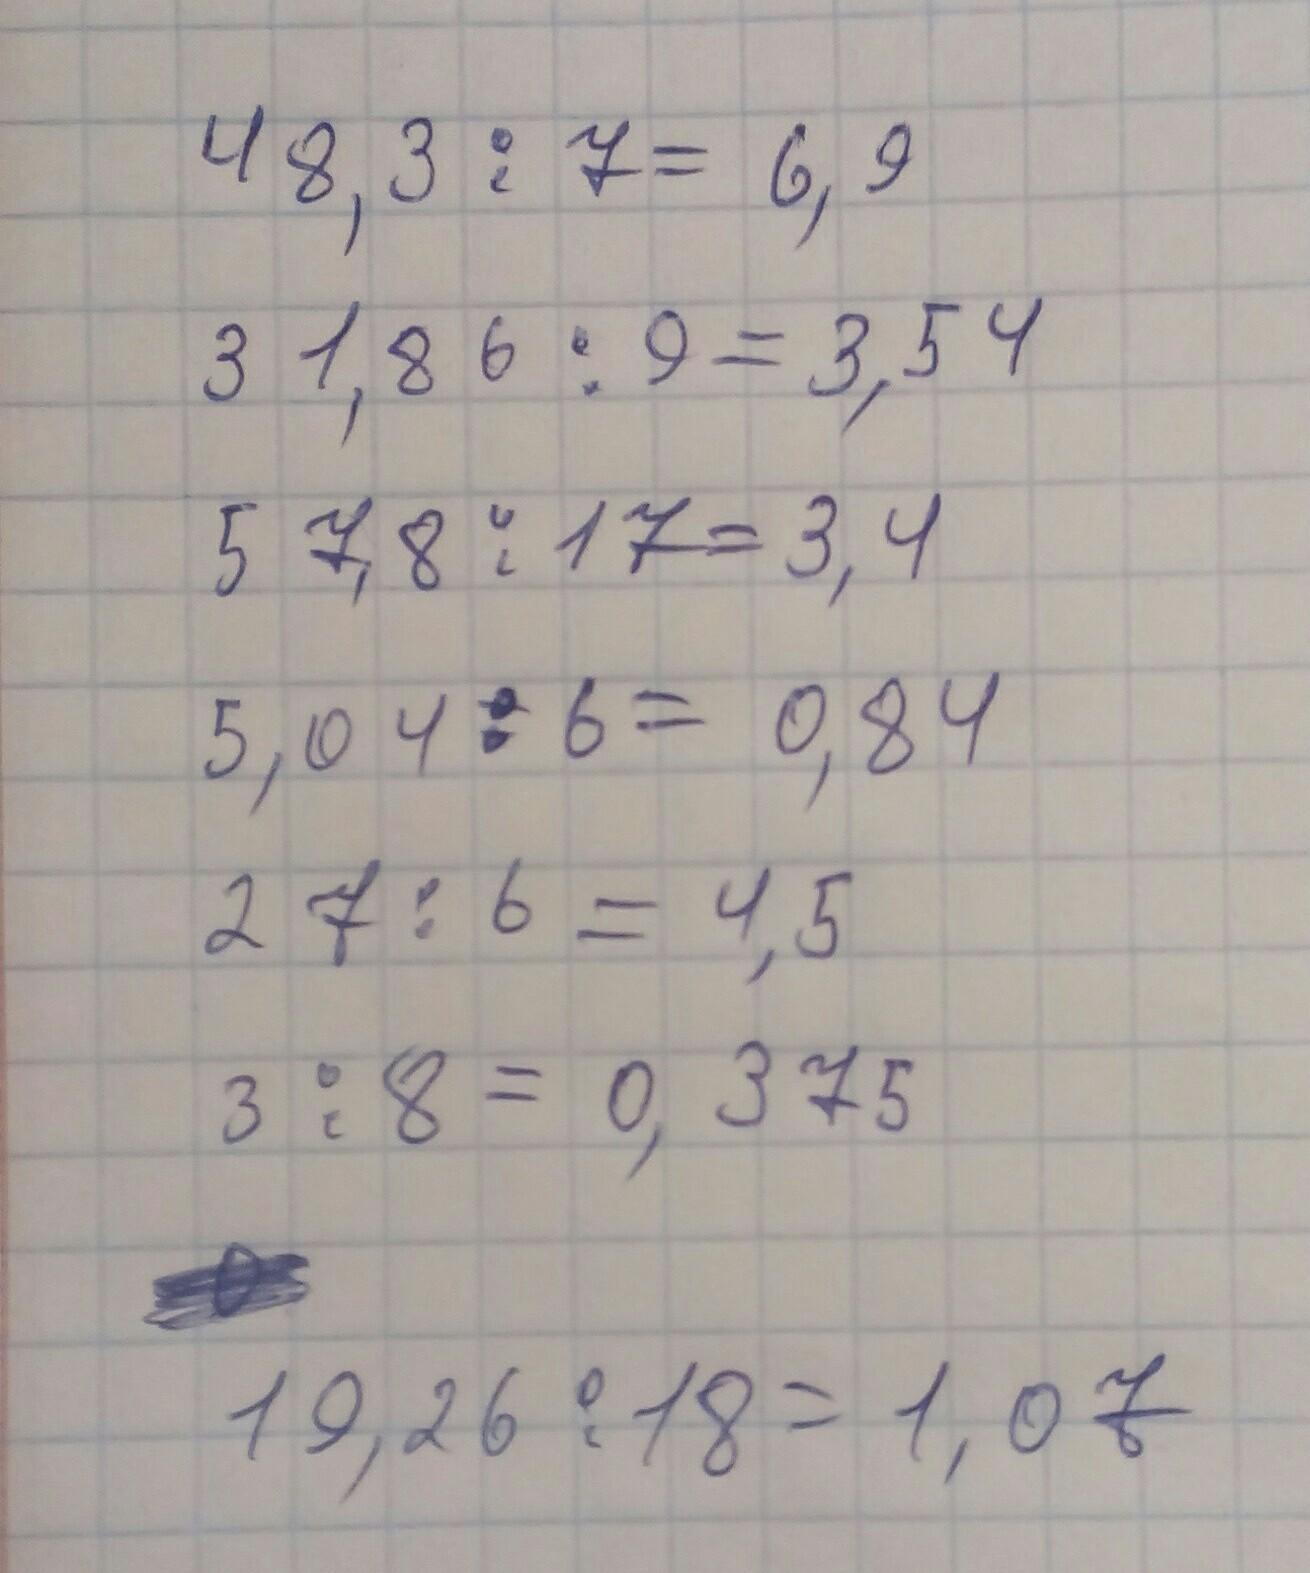 48,3 : 7 = 6,9
31,86 : 9 = 3,54
57,8 : 17 = 3,4
5,04 : 6 = 0,84
27 : 6 = 4,5
3 : 8 = 0,375
19,26 : 18 = 1,07